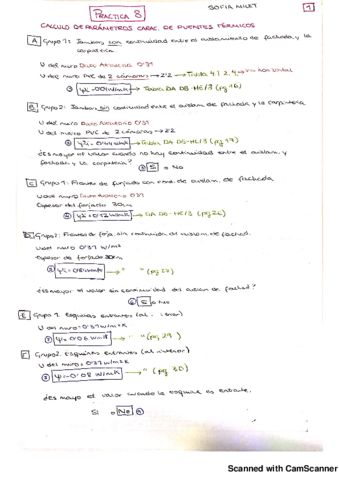 SOFIA MILET
1
PRÁCTICA 8
CALCULO DE PARÁMETROS CARAC. DE PUENTES TÉRMICOS
A Grupo 1: Jambas con continuidad entre el aislamiento de fachada y la
carpintería
U del muro DATO ANTERIOR 0'37
U del marco PVC de 2 cámaras → 2'2 → Tabla
→ Tabla DA DB-HE/3 (pg 16)
B Grupo 2: Jambas sin continuidad entre el aislam. de fachada y la carpintería
U del muro DATO ANTERIOR 0'37
U del marco PVC de 2 cámaras → 2'2
→ Tabla DA DB-HE/3
¿Es mayor el valor cuando no hay continuidad entre el aislam. y
fachada y la carpintería? Sí o No
C Grupo 1: Frentes de forjado con cont. de aislam. de fachada
DATO ANTERIOR 0'37
Espesor del forjado 30cm
→ DA DB-HE/3
D Grupo 2: Frentes de forja. sin continuidad del aislam. de fachad.
U del muro 0'37 W/m²
Espesor de forjado 30cm
¿Es mayor el valor sin continuidad del aislan de fachad?
Sí o No
E Grupo 1. Esquinas entrantes
U del muro = 0'37 W/m²K
ψ = 0'06 W/mK → " " (pg 29)
F Grupo 2. Esquinas entrantes (al interior)
U del muro = 0'37 W/m²K
ψ = 0'08 W/mK → " (pg 30)
¿Es mayor el valor cuando la esquina es entrante.
Si o No
Scanned with CamScanner